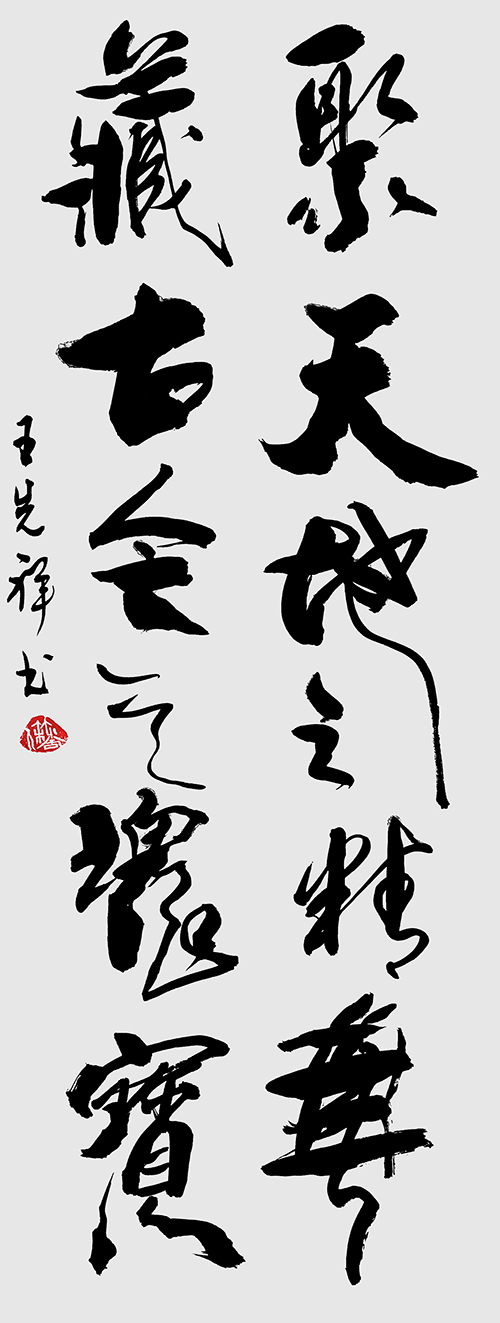 聚天地之精華
藏古今之瑰寶
王先祥书